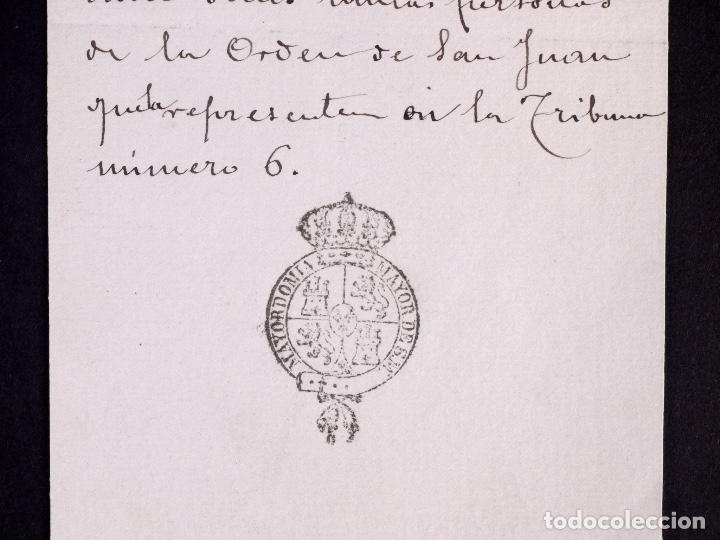 personas
de la Orden de San Juan
que la representen en la Tribuna
número 6.
MAYORDOMIA MAYOR DE S.M.
todocoleccion